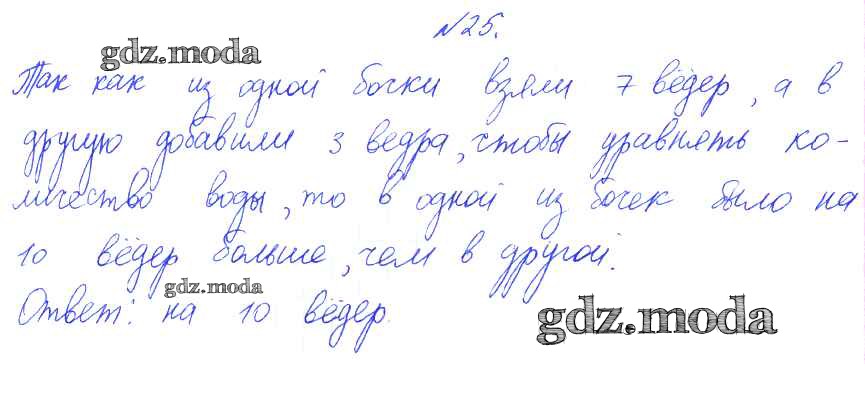 №25.
gdz.moda
Так как из одной бочки взяли 7 вёдер, а в
другую добавили 3 ведра, чтобы уравнять ко-
личество воды, то в одной из бочек было на
10 вёдер больше, чем в другой.
gdz.moda
Ответ: на 10 вёдер.
gdz.moda